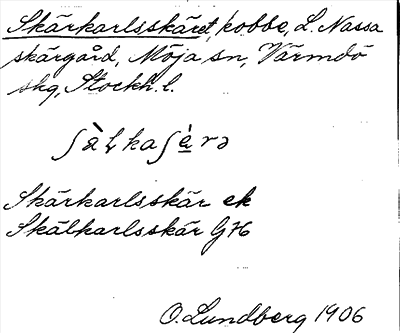 Skärkarlsskäret, kobbe, L. Nassa
skärgård, Möja sn, Värmdö
skg, Stockh. l.
Skärkarlsskär ek
Skälkarlsskär GK
O. Lundberg 1906